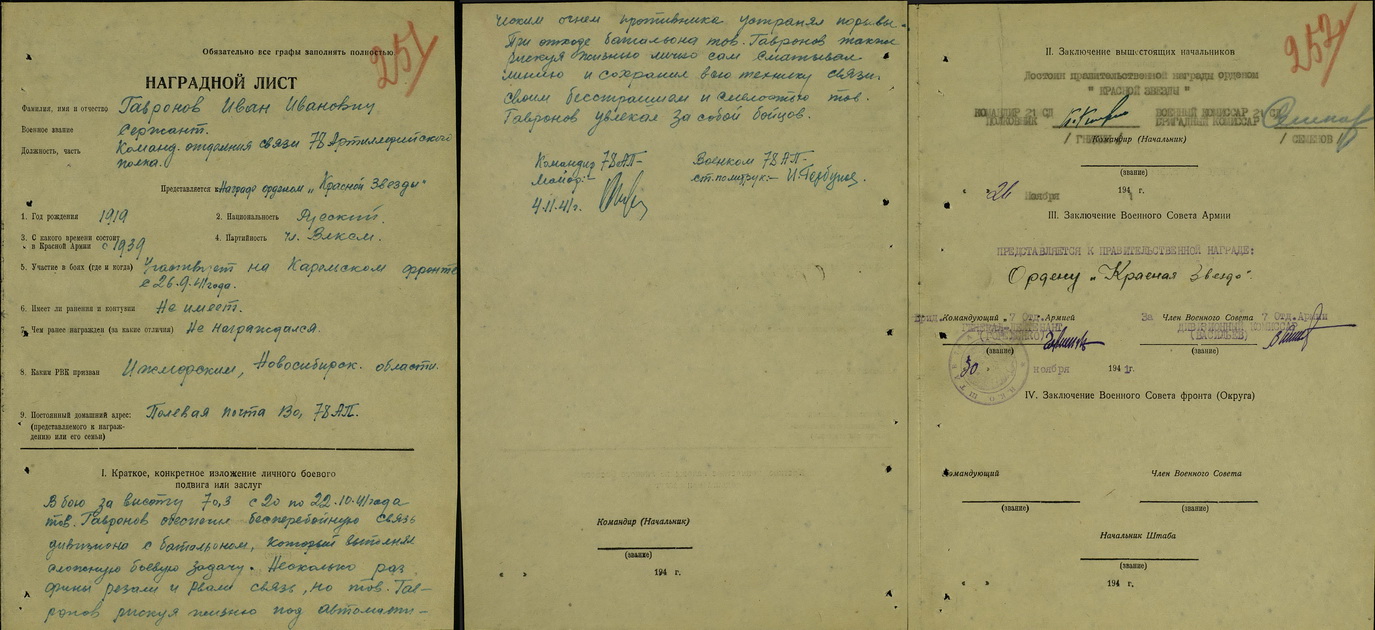 Обязательно все графы заполнять полностью
257
НАГРАДНОЙ ЛИСТ
Фамилия, имя и отчество Гавронов Иван Иванович
Военное звание Сержант.
Должность, часть Команд. отделения связи 78 Артиллерийского
полка.
Представляется к Награде орденом „Красной Звезды"
1. Год рождения 1919
2. Национальность Русский.
3. С какого времени состоит
в Красной Армии с 1939
4. Партийность чл. Влксм.
5. Участие в боях (где и когда) Участвует на Карельском фронте
с 26.9.41года.
6. Имеет ли ранения и контузии Не имеет.
7. Чем ранее награжден (за какие отличия) Не награждался.
8. Каким РВК призван Ижморским, Новосибирск. области.
9. Постоянный домашний адрес: Полевая почта 130, 78АП.
(представляемого к награж-
дению или его семьи)
I. Краткое, конкретное изложение личного боевого
подвига или заслуг
В бою за высоту 70,3 с 20 по 22.10.41года
тов. Гавронов обеспечил бесперебойную связь
дивизиона с батальоном, который выполнял
сложную боевую задачу. Несколько раз
фины резали и рвали связь, но тов. Гав-
ронов рискуя жизнью под автомати-
ческим огнем противника устранял порывы.
При отходе батальона тов. Гавронов также
рискуя жизнью лично сам сматывал
линию и сохранил всю технику связи.
Своим бесстрашием и смелостью тов.
Гавронов увлекал за собой бойцов.
Командир 78АП-
Майор:-
4.11.41г.
Военком 78АП-
ст.политрук:-
Командир (Начальник)
(звание)
« » 194 г.
257
II. Заключение вышестоящих начальников
Достоин правительственной награды орденом
" КРАСНОЙ ЗВЕЗДЫ "
КОМАНДИР 21 СД
ПОЛКОВНИК
ВОЕННЫЙ КОМИССАР 21 СД
БРИГАДНЫЙ КОМИССАР
Командир (Начальник)
(звание)
« 26 » Ноября 1941 г.
III. Заключение Военного Совета Армии
ПРЕДСТАВЛЯЕТСЯ К ПРАВИТЕЛЬСТВЕННОЙ НАГРАДЕ:
Ордену „Красная Звезда".
Командующий 7 Отд. Армией
ГЕНЕРАЛ-ЛЕЙТЕНАНТ
(звание)
За Член Военного Совета 7 Отд. Армии
ДИВИЗИОННЫЙ КОМИССАР
(ВАСИЛЬЕВ)
(звание)
30 ноября 1941 г.
IV. Заключение Военного Совета фронта (Округа)
Командующий
(звание)
Член Военного Совета
(звание)
Начальник Штаба
(звание)
« » 194 г.